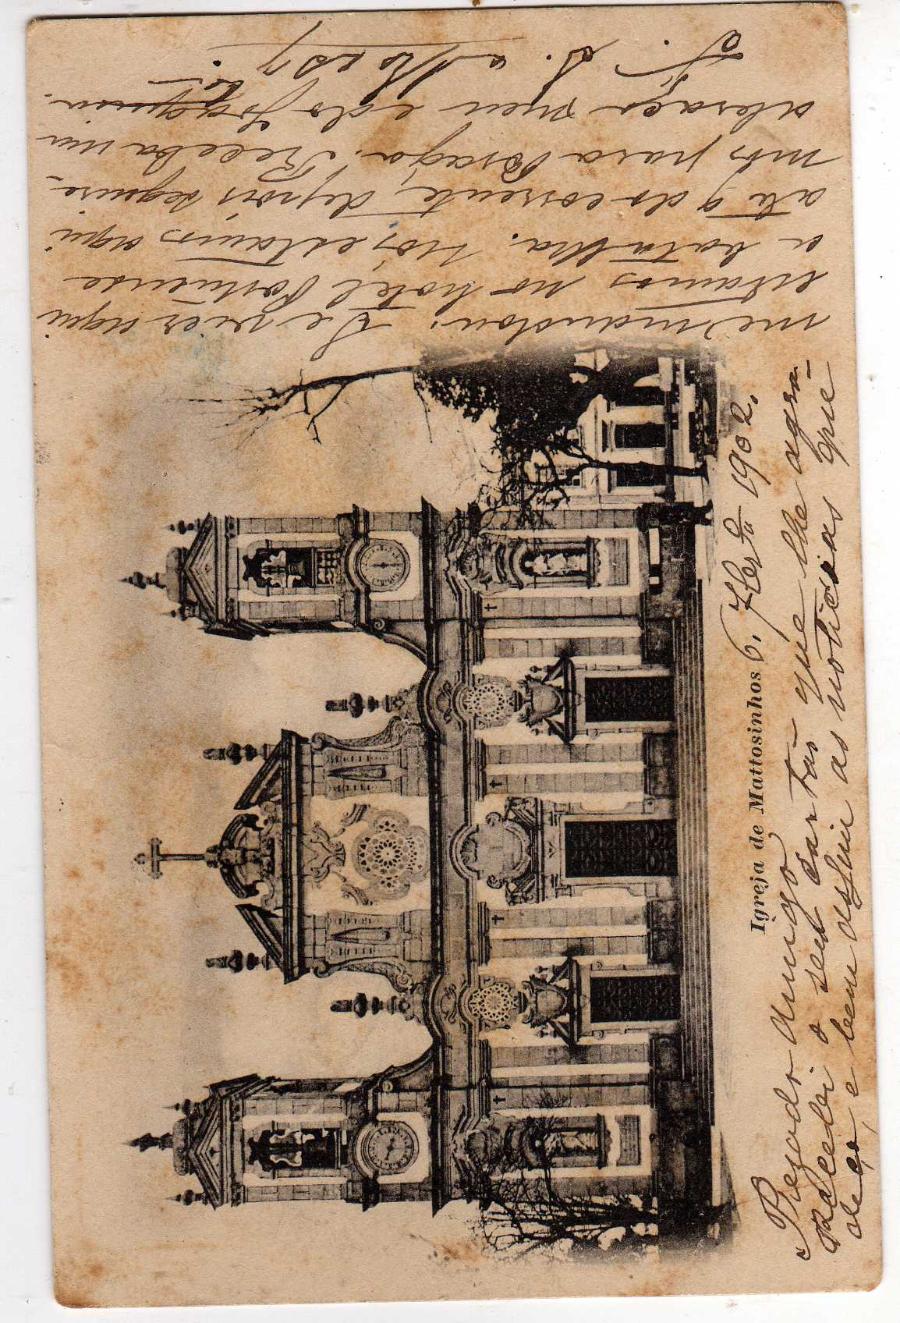 Igreja de Mattosinhos 6, 7bro 1902.
Prezado Amigo
Recebi o seu cartão que lhe agra-
deço, e bem assim as noticias que
me mandou. Se vier aqui
estamos no hotel Portuense
a batalha. Nós, estamos aqui
até 9 do corrente, depois seguire-
mos para Braga. Receba um
abraço meu e do